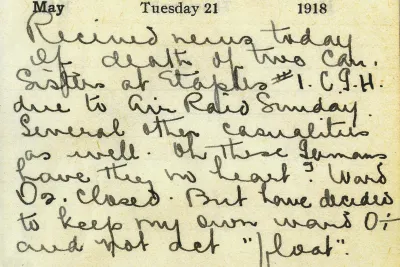 May Tuesday 21 1918
Recieved news today
of death of two Can.
Sisters at Etaples #1. C.G.H.
due to Air Raid Sunday.
Several other casualities
as well. Oh these Germans
have they no heart? Ward
closed. But have decided
to keep my own ward
and not act "float".